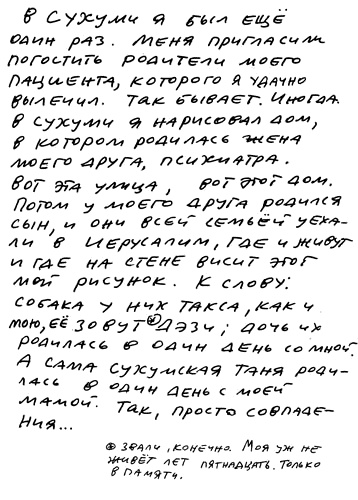 В СУХУМИ Я БЫЛ ЕЩЁ
ОДИН РАЗ. МЕНЯ ПРИГЛАСИЛИ
ПОГОСТИТЬ РОДИТЕЛИ МОЕГО
ПАЦИЕНТА, КОТОРОГО Я УДАЧНО
ВЫЛЕЧИЛ. ТАК БЫВАЕТ. ИНОГДА.
В СУХУМИ Я НАРИСОВАЛ ДОМ,
В КОТОРОМ РОДИЛАСЬ ЖЕНА
МОЕГО ДРУГА, ПСИХИАТРА.
ВОТ ЭТА УЛИЦА, ВОТ ЭТОТ ДОМ.
ПОТОМ У МОЕГО ДРУГА РОДИЛСЯ
СЫН, И ОНИ ВСЕЙ СЕМЬЁЙ УЕХА-
ЛИ В ИЕРУСАЛИМ, ГДЕ И ЖИВУТ
И ГДЕ НА СТЕНЕ ВИСИТ ЭТОТ
МОЙ РИСУНОК. К СЛОВУ:
СОБАКА У НИХ ТАКСА, КАК И
МОЮ, ЕЁ ЗОВУТ ⊛ ДЭЗИ; ДОЧЬ ИХ
РОДИЛАСЬ В ОДИН ДЕНЬ СО МНОЙ.
А САМА СУХУМСКАЯ ТАНЯ РОДИ-
ЛАСЬ В ОДИН ДЕНЬ С МОЕЙ
МАМОЙ. ТАК, ПРОСТО СОВПАДЕ-
НИЯ...
⊛ ЗВАЛИ, КОНЕЧНО. МОЯ УЖ НЕ
ЖИВЁТ ЛЕТ ПЯТНАДЦАТЬ. ТОЛЬКО
В ПАМЯТИ.